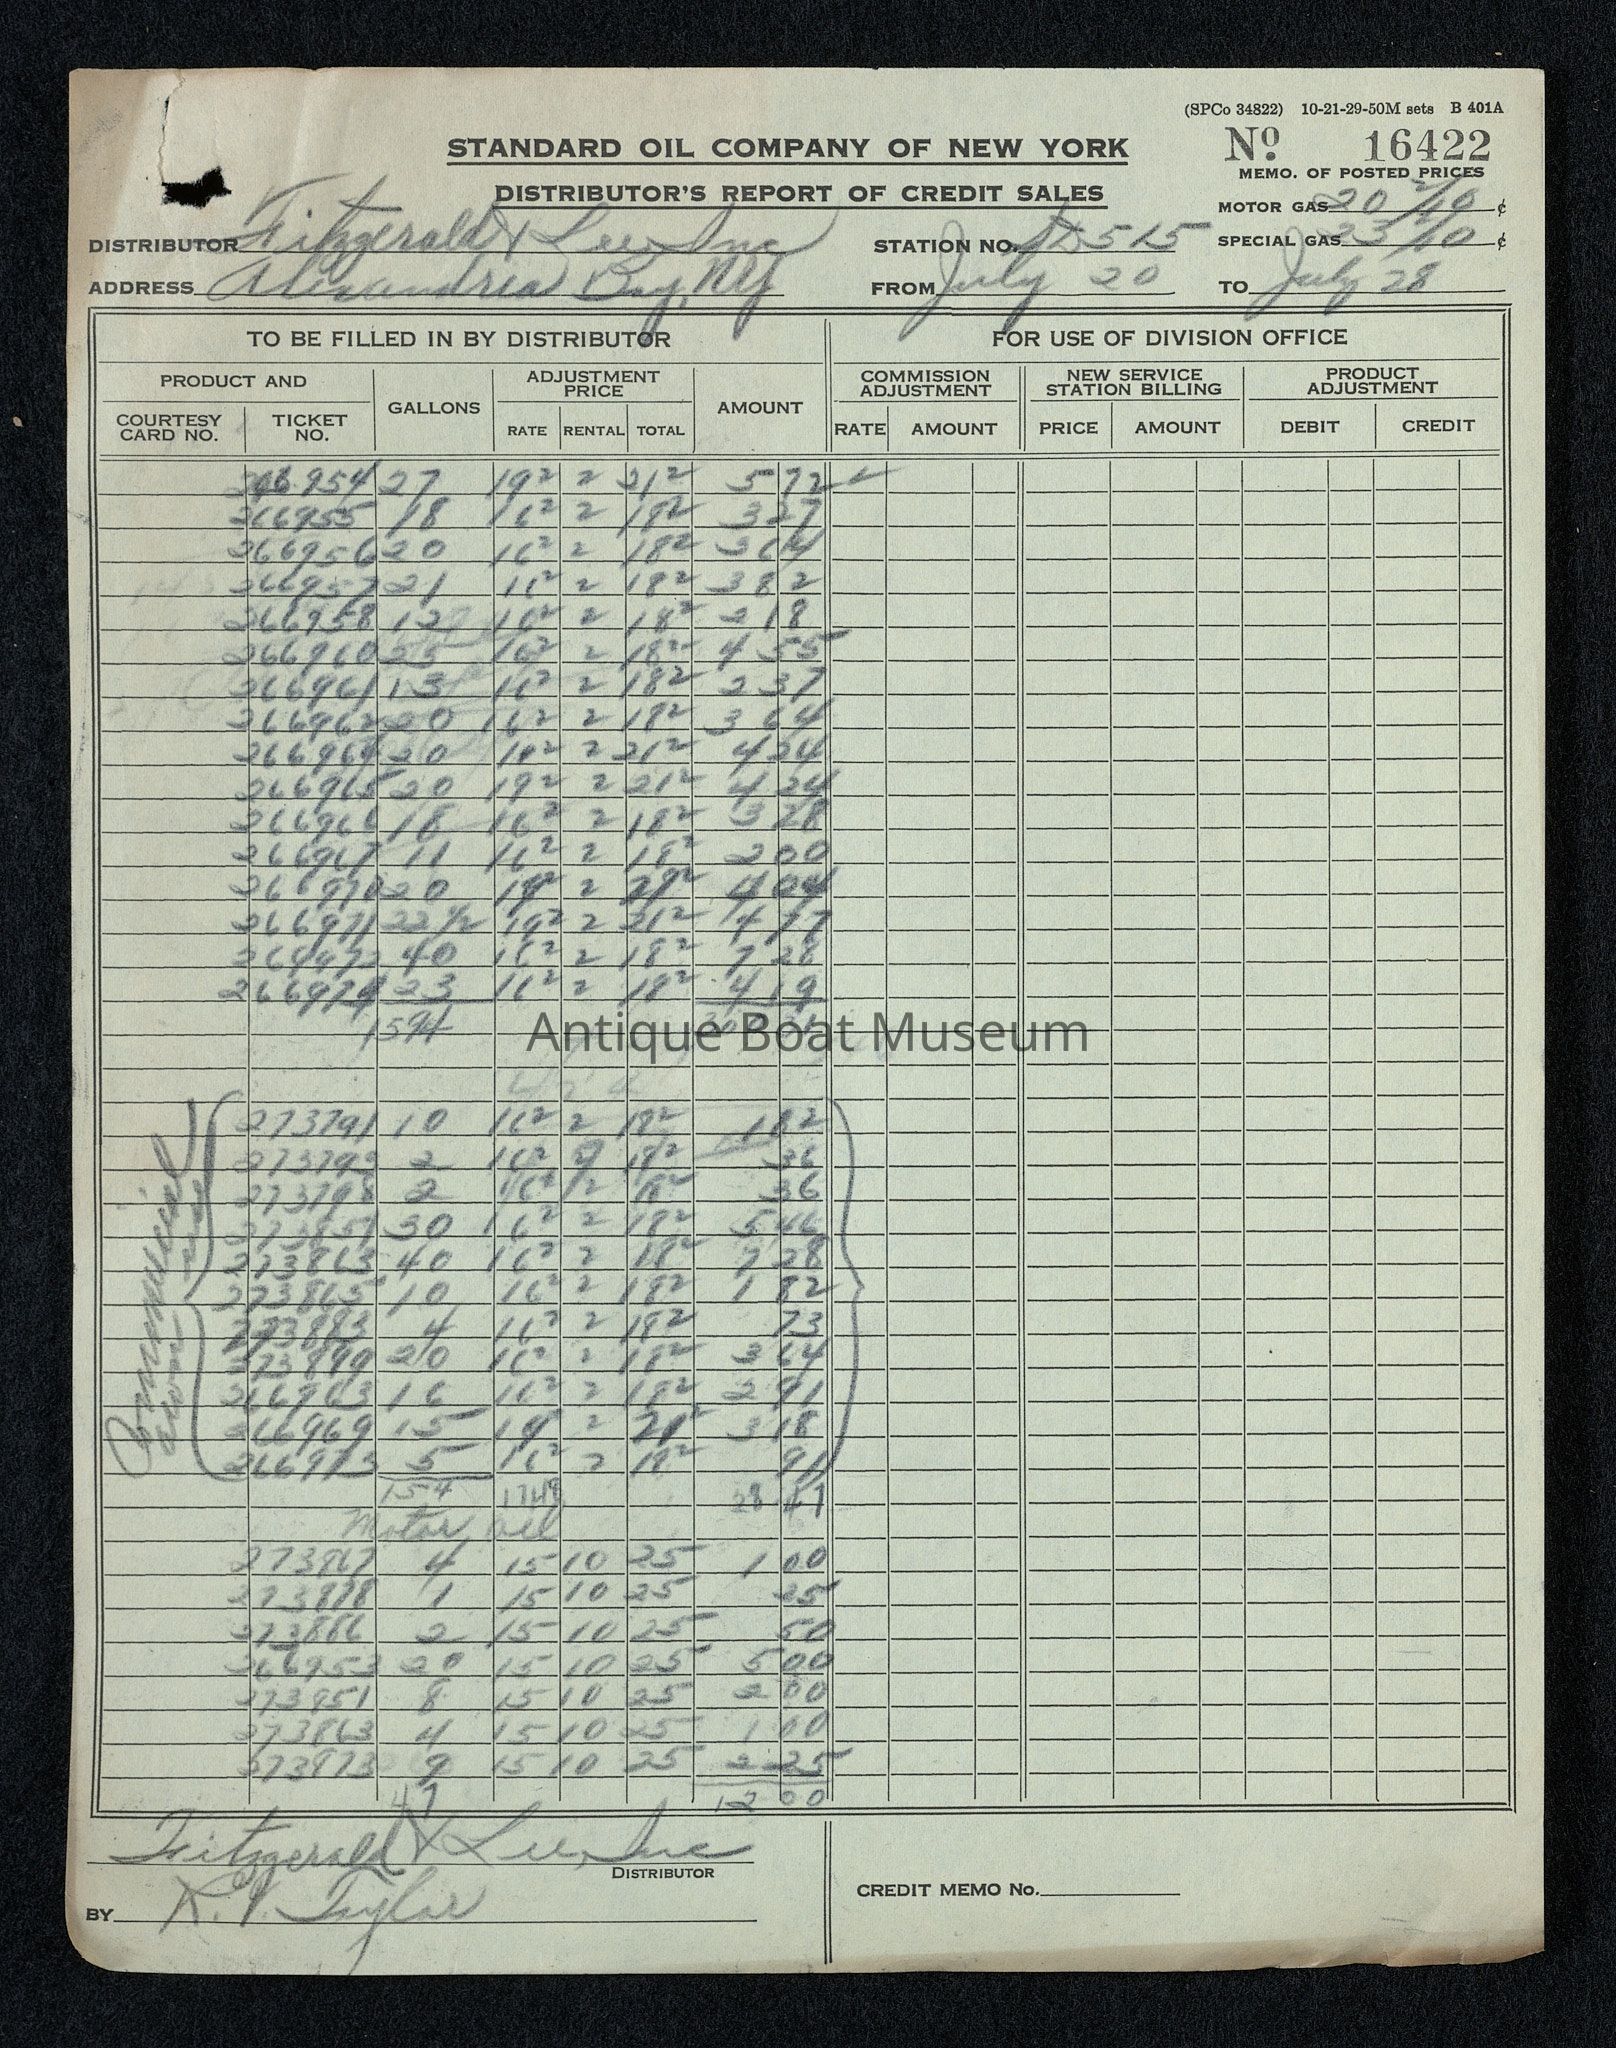 (SPCo 34822) 10-21-29-50M sets B 401A
STANDARD OIL COMPANY OF NEW YORK
No. 16422
MEMO. OF POSTED PRICES
DISTRIBUTOR'S REPORT OF CREDIT SALES
MOTOR GAS 20 2/10 ¢
DISTRIBUTOR Fitzgerald & Lee, Inc STATION NO. 515 SPECIAL GAS 23 /10 ¢
ADDRESS Alexandria Bay, NY FROM July 20 TO July 28
TO BE FILLED IN BY DISTRIBUTOR FOR USE OF DIVISION OFFICE
PRODUCT AND GALLONS ADJUSTMENT PRICE AMOUNT COMMISSION ADJUSTMENT NEW SERVICE STATION BILLING PRODUCT ADJUSTMENT
COURTESY CARD NO. TICKET NO. RATE RENTAL TOTAL RATE AMOUNT PRICE AMOUNT DEBIT CREDIT
266954 27 19² 2 21² 5 72 ✓
266955 18 16² 2 18² 3 27
266956 20 16² 2 18² 3 64
266957 21 16² 2 18² 3 82
266958 12 16² 2 18² 2 18
266960 25 16² 2 18² 4 55
266961 13 16² 2 18² 2 37
266962 20 16² 2 18² 3 64
266964 20 19² 2 21² 4 24
266965 20 19² 2 21² 4 24
266966 18 16² 2 18² 3 28
266967 11 16² 2 18² 2 00
266970 20 19² 2 21² 4 04
266971 22 1/2 19² 2 21² 4 77
266972 40 16² 2 18² 7 28
266974 23 16² 2 18² 4 19
Antique Boat Museum
273791 10 16² 2 18² 1 82
2 16² 2 18² 36
273798 2 16² 2 18² 36
273857 30 16² 2 18² 5 46
273863 40 16² 2 18² 7 28
273865 10 16² 2 18² 1 82
273883 4 16² 2 18² 73
273899 20 16² 2 18² 3 64
266963 16 16² 2 18² 2 91
266969 15 19² 2 21² 3 18
266973 5 16² 2 18² 91
Commercial
154 28 47
Motor Oil
273867 4 15 10 25 1 00
273878 1 15 10 25 25
273866 2 15 10 25 50
266953 20 15 10 25 5 00
273851 8 15 10 25 2 00
273863 4 15 10 25 1 00
273873 9 15 10 25 2 25
47 12 00
Fitzgerald & Lee, Inc
DISTRIBUTOR
CREDIT MEMO No.
BY R. V. Taylor